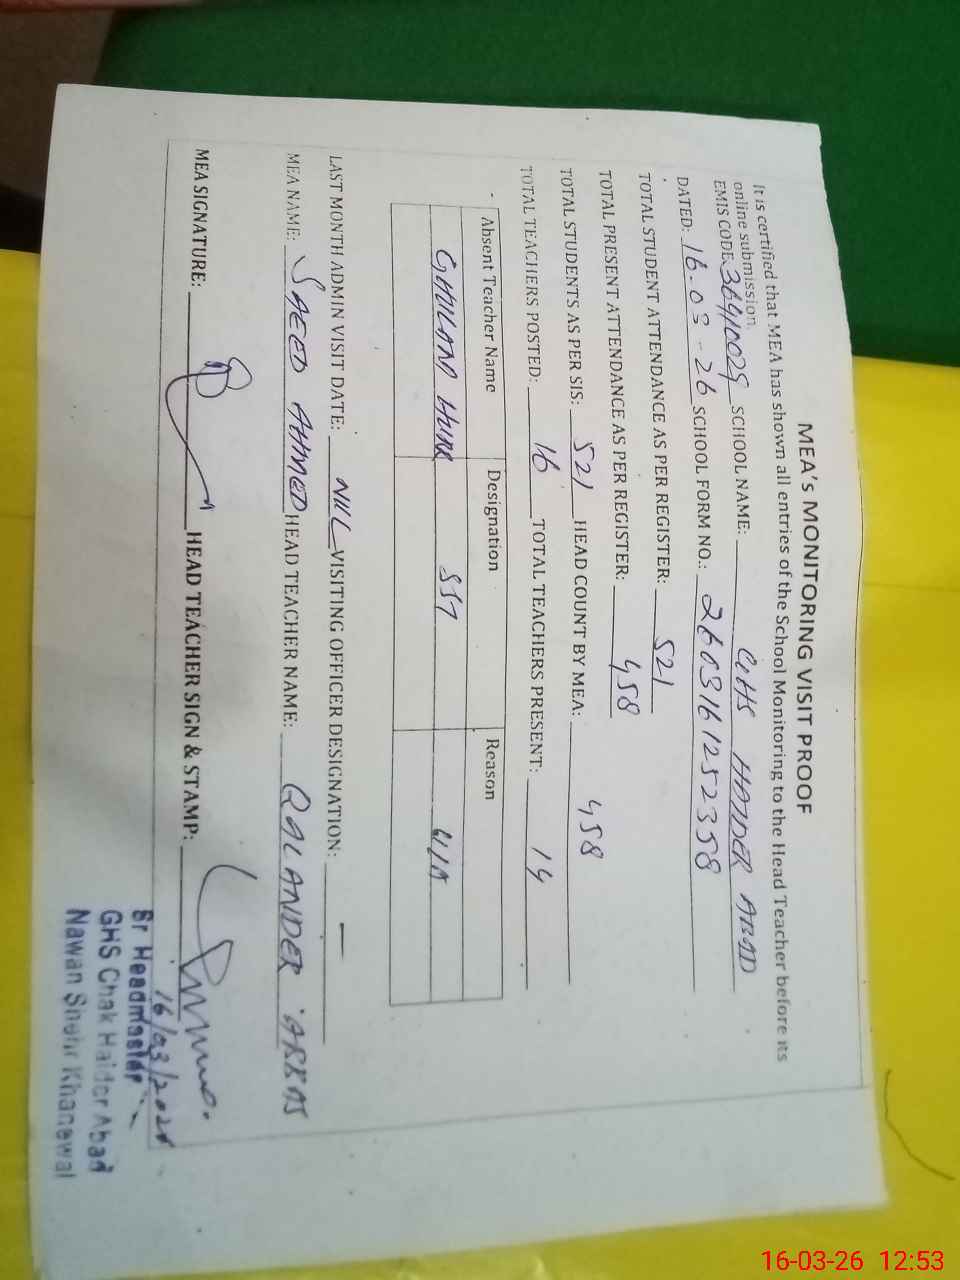 MEA's MONITORING VISIT PROOF
It is certified that MEA has shown all entries of the School Monitoring to the Head Teacher before its
online submission.
EMIS CODE: 36410029 SCHOOL NAME: GHS HAIDER ABAD
DATED: 16-03-26 SCHOOL FORM NO.: 2603161252358
TOTAL STUDENT ATTENDANCE AS PER REGISTER: 521
TOTAL PRESENT ATTENDANCE AS PER REGISTER: 458
TOTAL STUDENTS AS PER SIS: 521 HEAD COUNT BY MEA: 458
TOTAL TEACHERS POSTED: 16 TOTAL TEACHERS PRESENT: 14
Absent Teacher Name Designation Reason
GHULAM
LAST MONTH ADMIN VISIT DATE: NILL VISITING OFFICER DESIGNATION: —
MEA NAME: SAEED AHMED HEAD TEACHER NAME: QALANDER
MEA SIGNATURE: HEAD TEACHER SIGN & STAMP:
16/03/2026
Sr Headmaster
GHS Chak Haider Abad
Nawan Shehr Khanewal
16-03-26 12:53